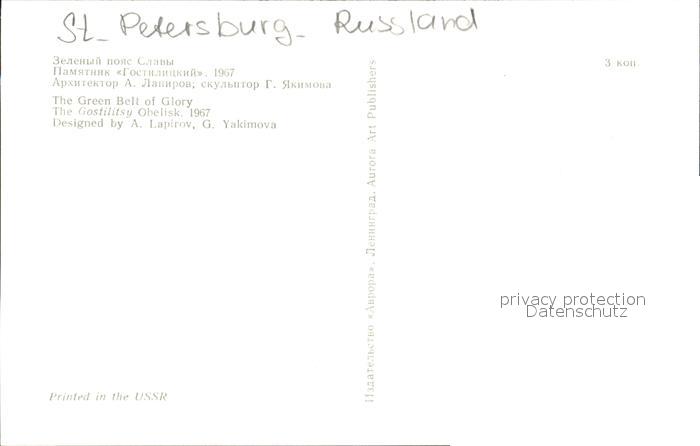 St. Petersburg - Russland
Зеленый пояс Славы
Памятник «Гостилицкий». 1967
Архитектор А. Лапиров; скульптор Г. Якимова
The Green Belt of Glory
The Gostilitsy Obelisk. 1967
Designed by A. Lapirov, G. Yakimova
3 коп
Издательство «Аврора». Ленинград. Aurora Art Publishers
privacy protection
Datenschutz
Printed in the USSR